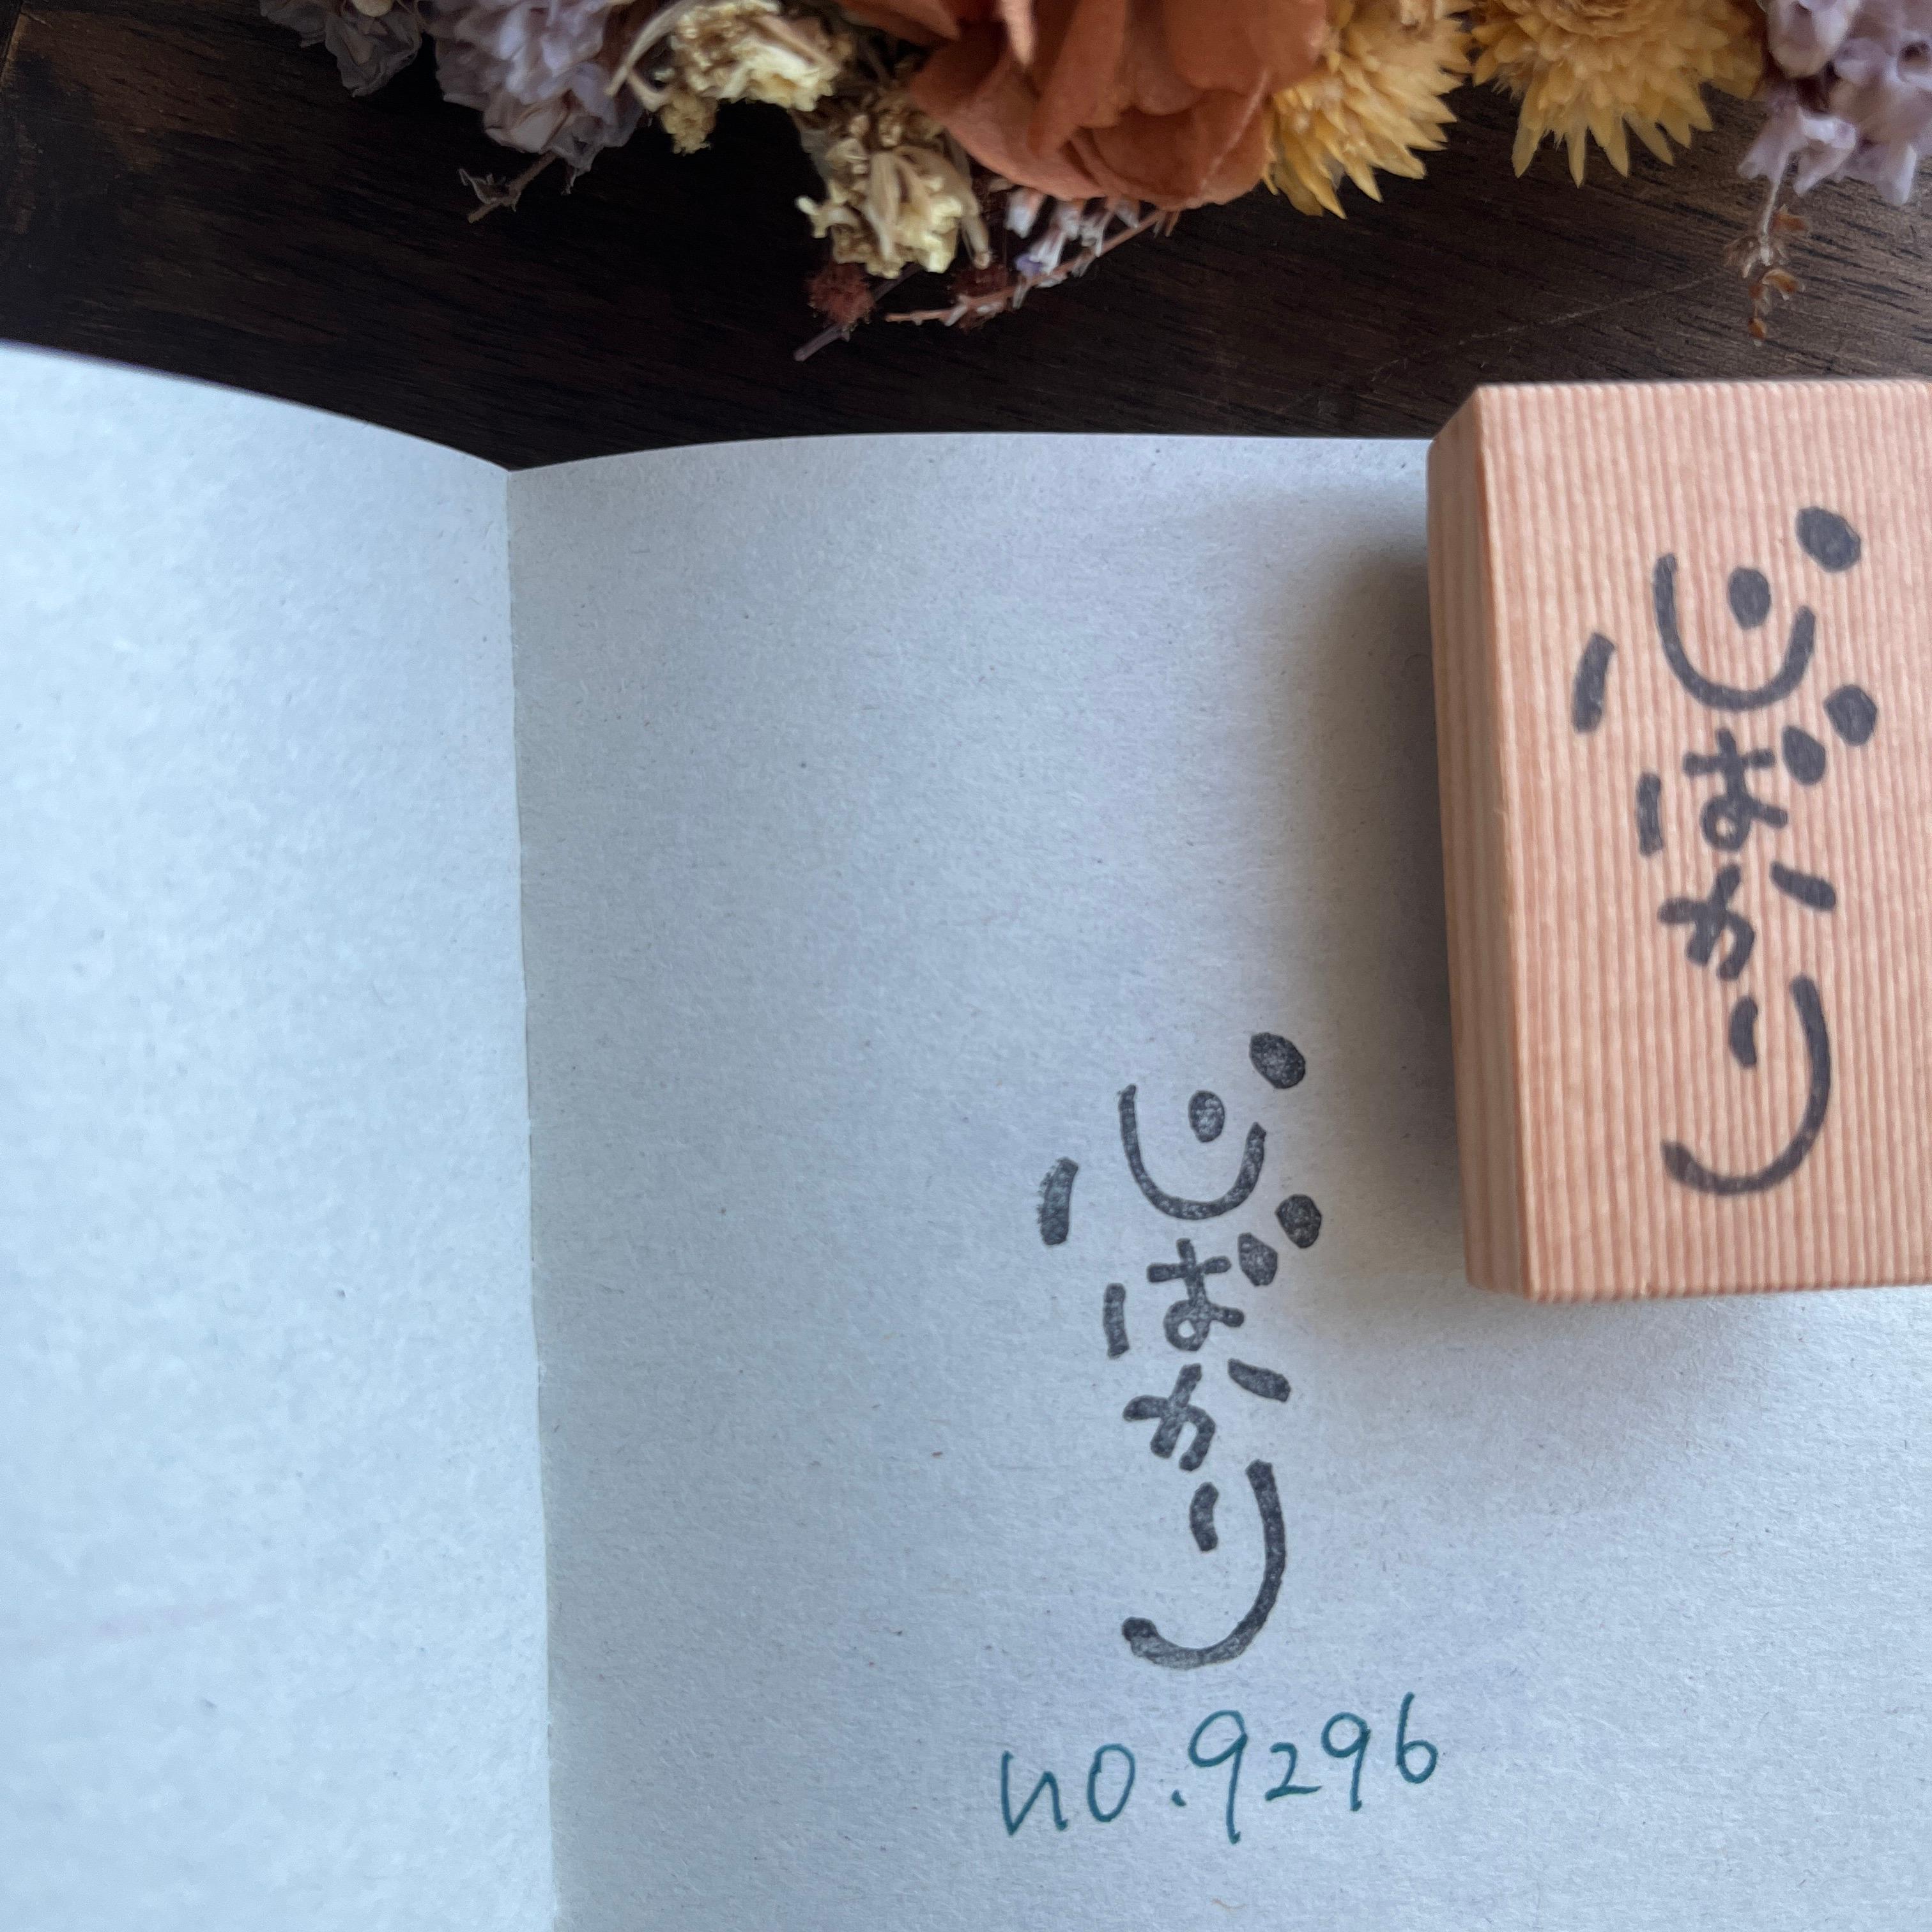 心ばかり
心ばかり
no.9296